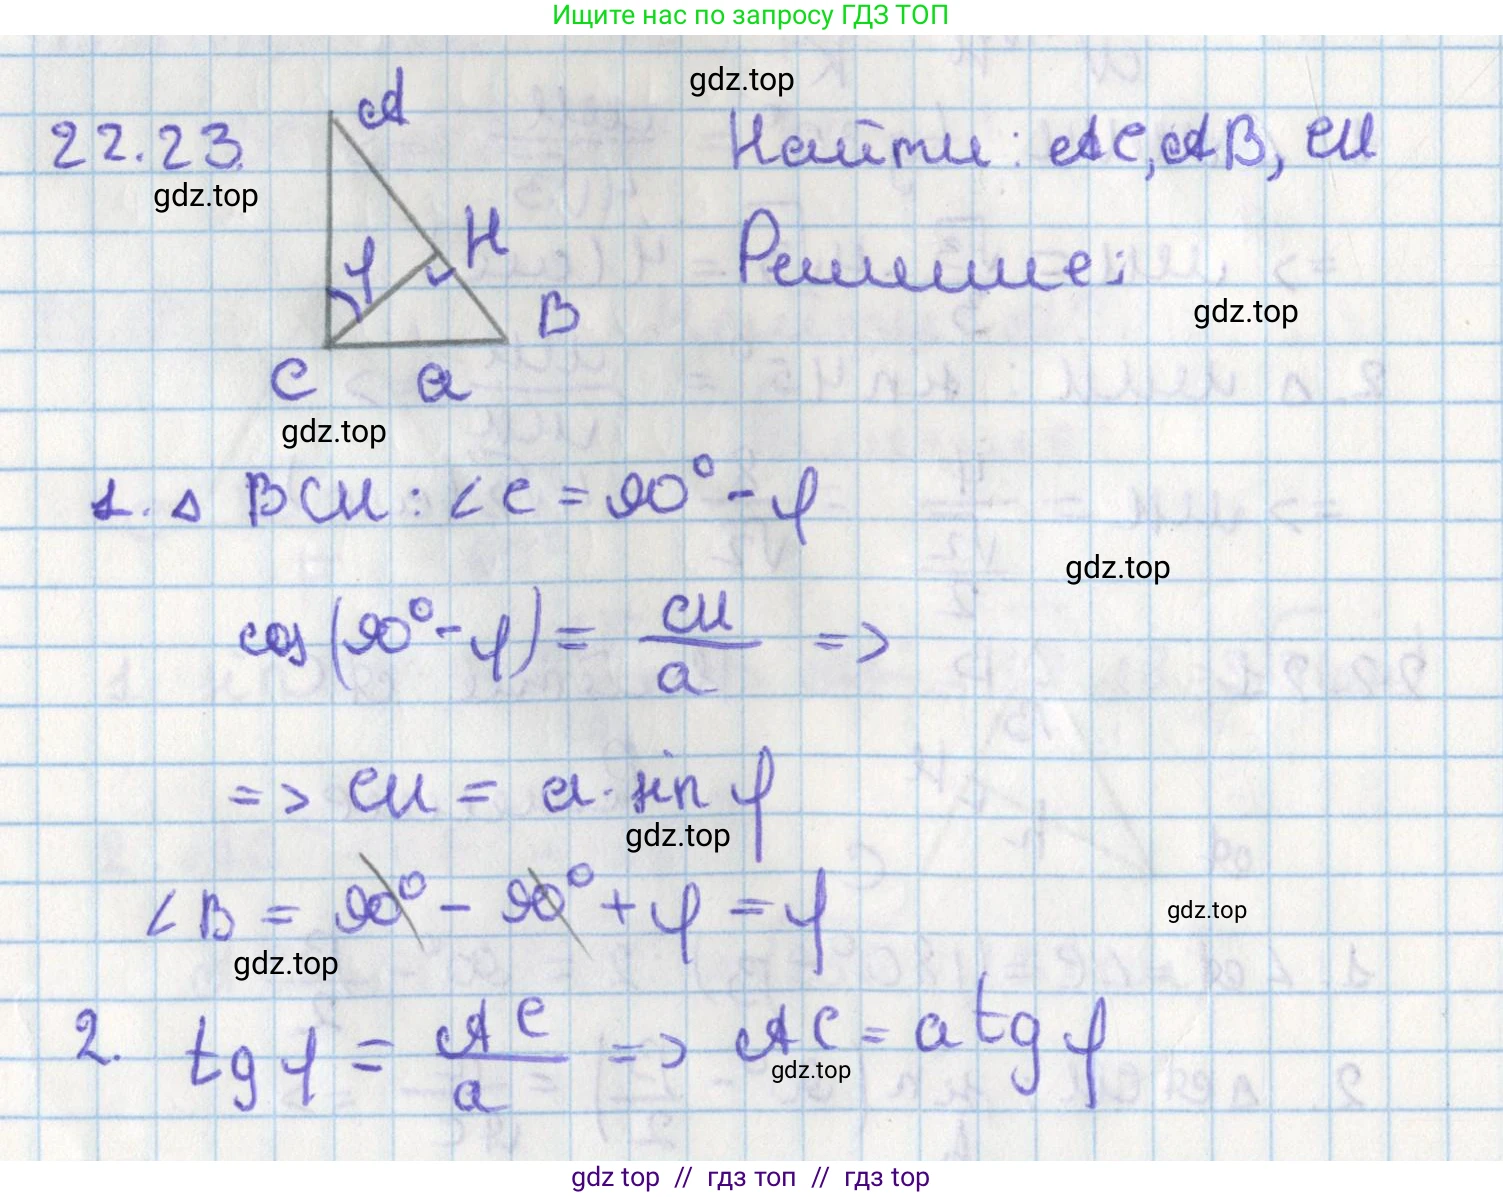 Ищите нас по запросу ГДЗ ТОП
gdz.top
22.23.
gdz.top
A
H
φ
B
C
a
gdz.top
Найти: AC, AB, CH
Решение:
gdz.top
1. Δ BCH: ∠C = 90° - φ
gdz.top
cos(90° - φ) = CH/a =>
=> CH = a · sin φ
gdz.top
∠B = 90° - 90° + φ = φ
gdz.top
gdz.top
2. tg φ = AC/a => AC = a tg φ
gdz.top
gdz top // гдз топ // гдз top